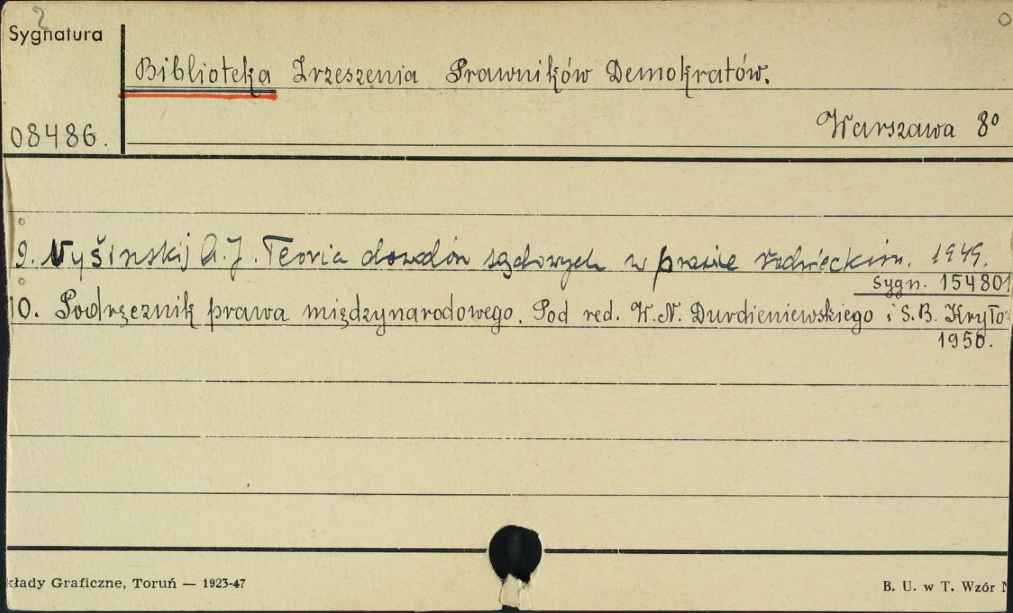 2
Sygnatura
Biblioteka Zrzeszenia Prawników Demokratów.
08486.
Warszawa 8°
9. Vyšinskij A. J. Teoria dowodów sądowych w prawie radzieckim. 1949.
Sygn. 154801
10. Podręcznik prawa międzynarodowego. Pod red. W.N. Durdieniewskiego i S.B. Kryło
1950.
kłady Graficzne, Toruń — 1923-47
B. U. w T. Wzór N